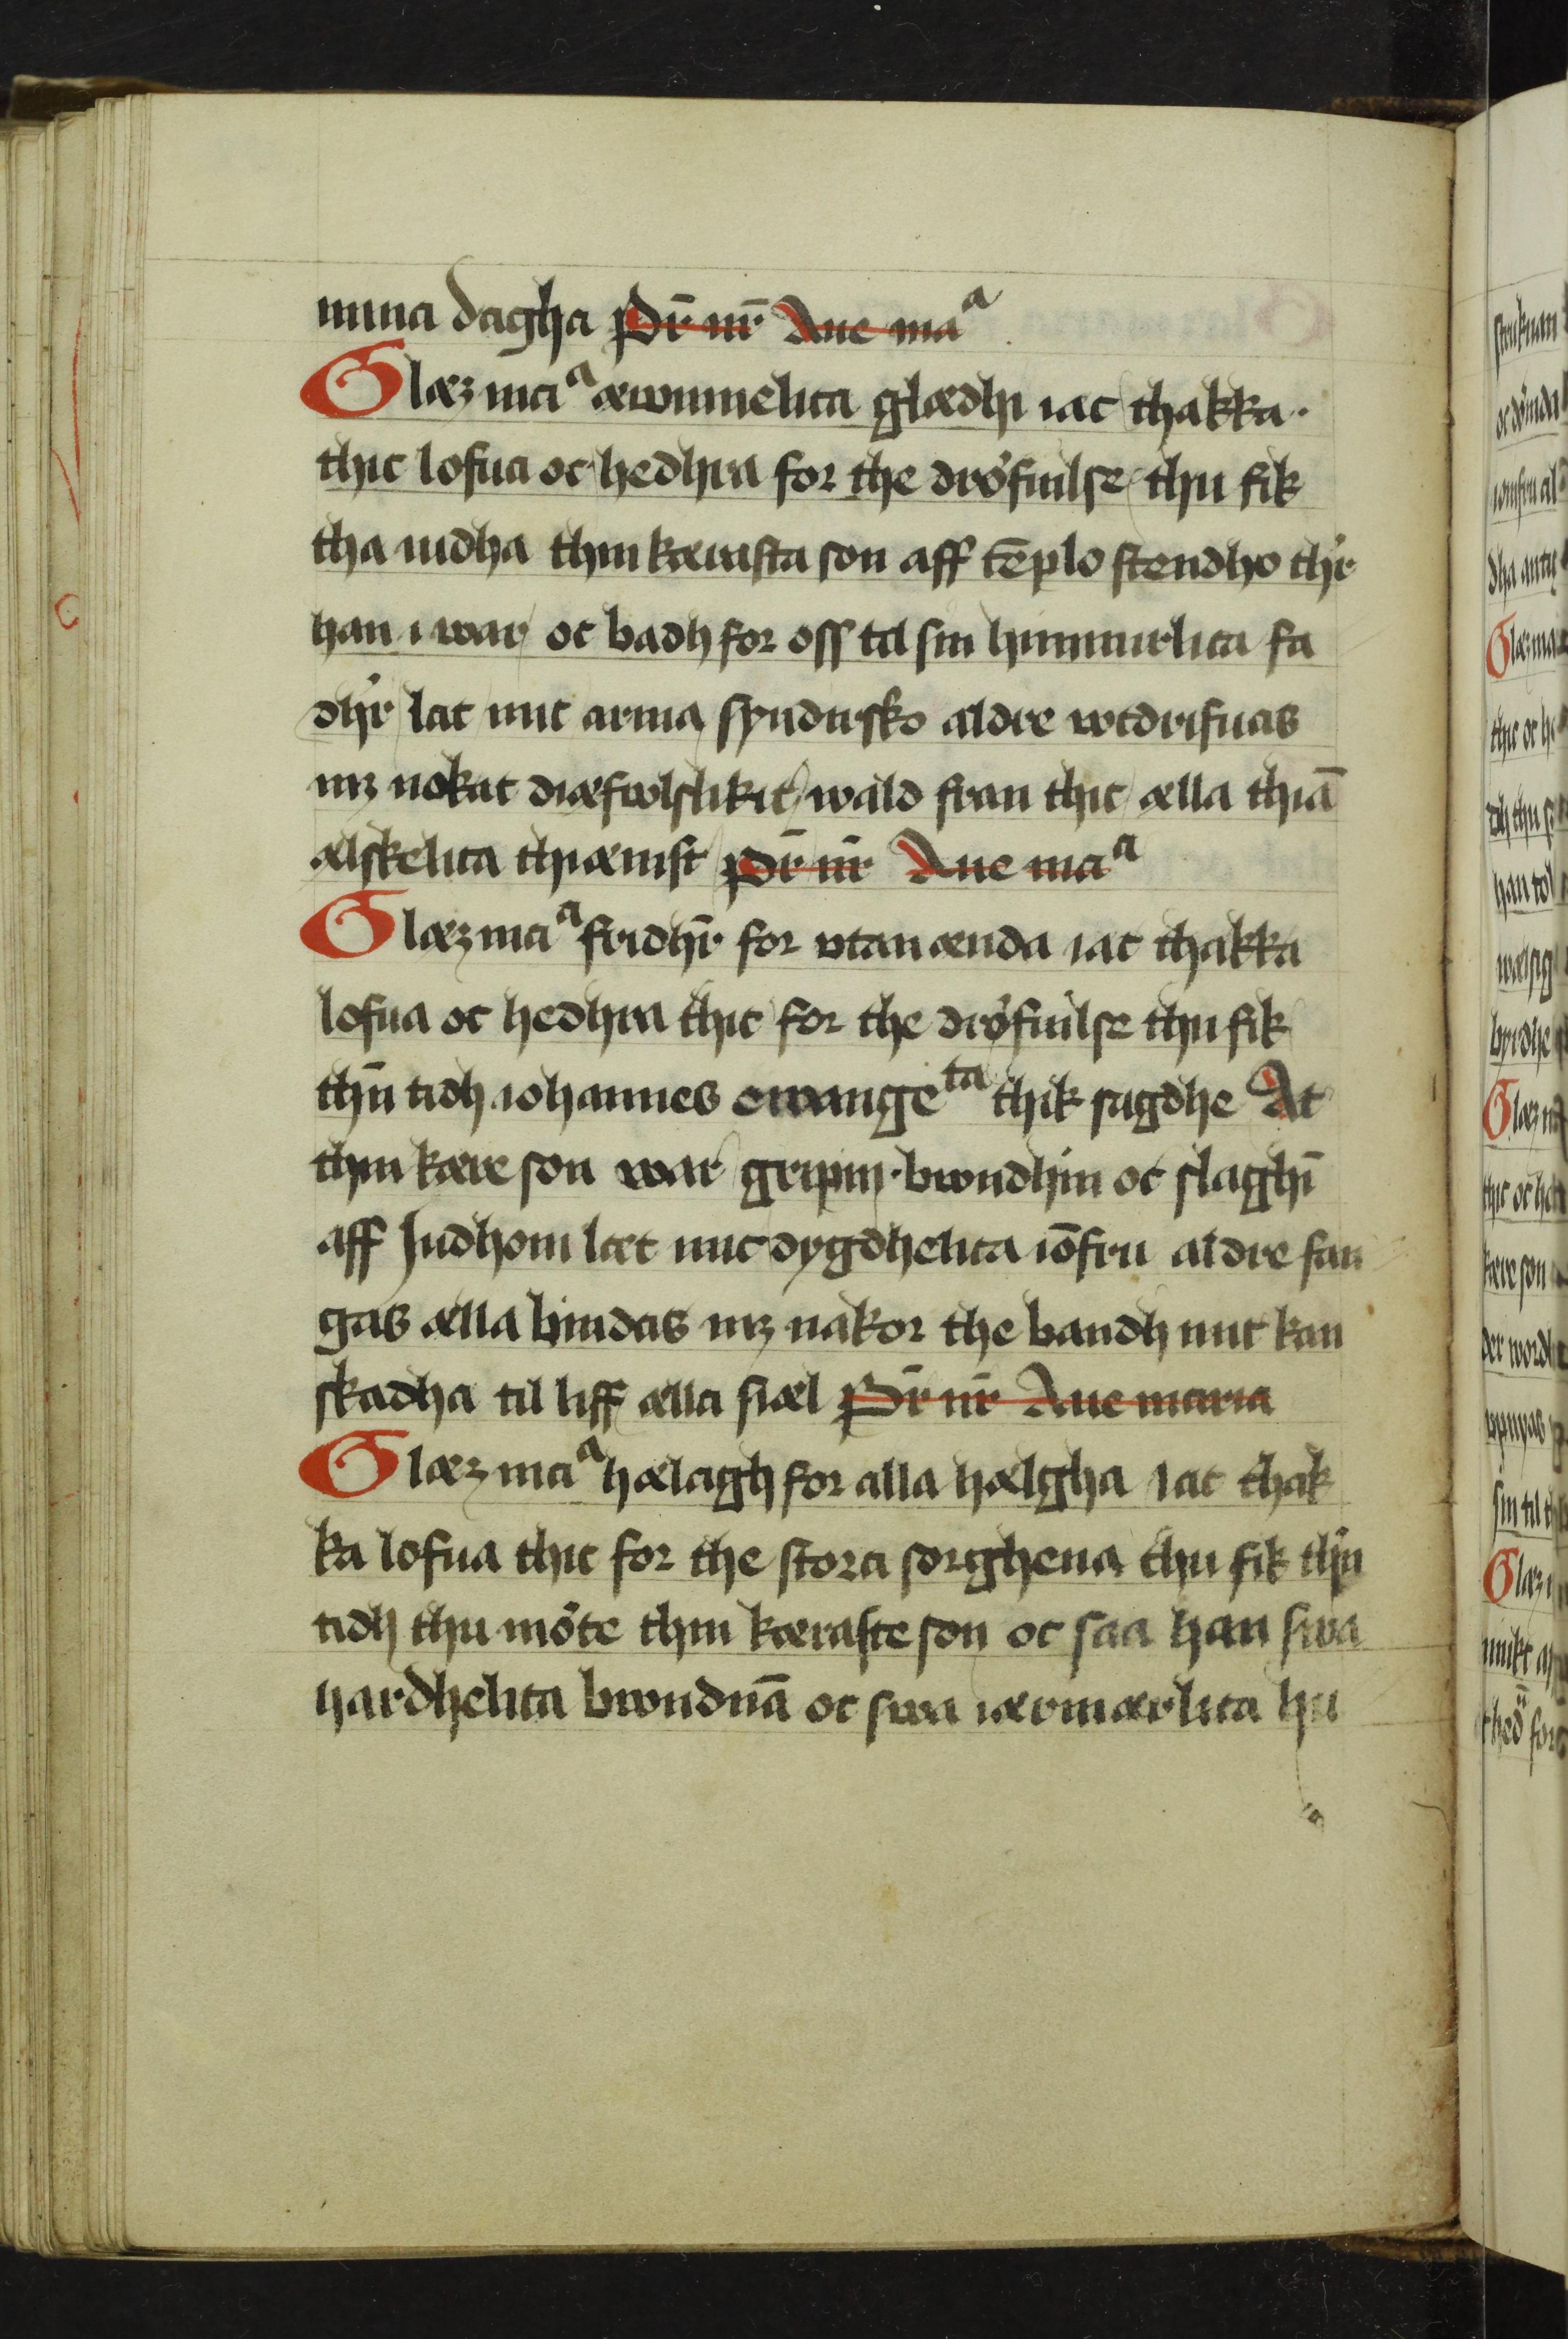 mina dagha Pr̄ nr̄ Aue maᵃ
Glæz maᵃ æwinnelica glædhi iac thakka.
thic lofua oc hedhra for the dröfuilse thu fik
tha iudha thin kærasta son aff tēplo stendho thr̄
han i war oc badh for oss til sin himmirlica fa
dhr̄ lat mic arma syndirsko aldre wtdrifuas
mz nokat diæfwlslikit wald fran thic ælla thiā
ælskelica thiænist Pr̄ nr̄ Aue maᵃ
Glæz maᵃ fridhr̄ for vtan ænda iac thakka
lofua oc hedhra thic for the dröfuilse thu fik
thn̄ tidh iohannes ewangeᵗᵃ thik sagdhe At
thin kære son war gripin. bwndhin oc slaghī
aff Judhom læt mic dygdhelica iōfru aldre fan
gas ælla bindas mz nakor the bandh mic kan
skadha til liff ælla siæl Pr̄ nr̄ Aue maria
Glæz maᵃ hælagh for alla hælgha iac thak
ka lofua thic for the stora sorghena thu fik thn̄
tidh thu möte thin kæraste son oc saa han swa
hardhelica bwndnā oc swa iærmærlica hu